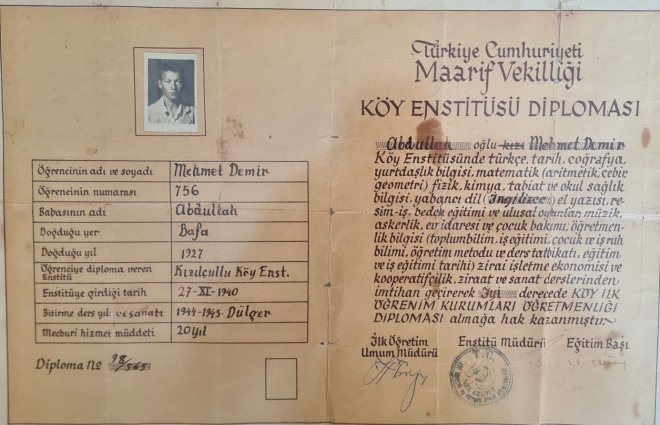 Öğrencinin adı ve soyadı Mehmet Demir
Öğrencinin numarası 756
Babasının adı Abdullah
Doğduğu yer Bafa
Doğduğu yıl 1927
Öğrenciye diploma veren Enstitü Kızılçullu Köy Enst.
Enstitüye girdiği tarih 27-XI-1940
Bitirme ders yıl ve sanatı 1944-1945-Dülger
Mecburi hizmet müddeti 20 yıl
Diploma No 98/565
Türkiye Cumhuriyeti
Maarif Vekilliği
KÖY ENSTİTÜSÜ DİPLOMASI
Abdullah oğlu kızı Mehmet Demir
Köy Enstitüsünde türkçe, tarih, coğrafya,
yurtdaşlık bilgisi, matematik (aritmetik, cebir,
geometri) fizik, kimya, tabiat ve okul sağlık
bilgisi, yabancı dil (İngilizce) el yazısı, re-
sim-iş, beden eğitimi ve ulusal oyunlar müzik,
askerlik, ev idaresi ve çocuk bakımı, öğretmen-
lik bilgisi (toplumbilim, iş eğitimi, çocuk ve iş ruh
bilimi, öğretim metodu ve ders tatbikatı, eğitim
ve iş eğitimi tarihi) zirai işletme ekonomisi ve
kooperatifçilik, ziraat ve sanat derslerinden
imtihan geçirerek İyi derecede KÖY İLK
ÖĞRENİM KURUMLARI ÖĞRETMENLİĞİ
DİPLOMASI almağa hak kazanmıştır.
İlk Öğretim Umum Müdürü
Enstitü Müdürü
Eğitim Başı
T.C.